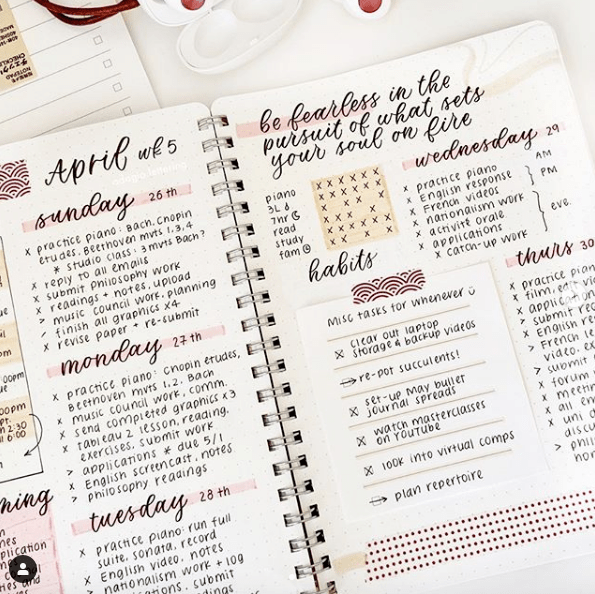 April wk 5
sunday 26th
x practice piano: Bach, Chopin
etudes, Beethoven mvts 1,2,3,4
* studio class: 3 mvts Bach?
x reply to all emails
x submit philosophy work
x readings + notes, upload
> music council work, planning
x finish all graphics x4
x revise paper + re-submit
monday 27th
x practice piano: Chopin etudes,
Beethoven mvts 1,2, Bach
x music council work, comm.
x send completed graphics x3
x tableau 2 lesson, reading,
exercises, submit work
> applications * due 5/1
x English screencast, notes
> philosophy readings
tuesday 28th
x practice piano: run full
suite, sonata, record
x English video, notes
x nationalism work + log
> applications, submit
be fearless in the
pursuit of what sets
your soul on fire
piano
3L
7hr
read
study
fam
habits
wednesday 29
x practice piano
x English response
x French videos
x nationalism work
x activité orale
x applications
x catch-up work
AM
PM
eve.
Misc tasks for whenever
x clear out laptop
storage & backup videos
re-pot succulents!
x set-up May bullet
journal spreads
x watch masterclasses
on YouTube
x look into virtual comps
plan repertoire
thurs 30
x practice
x film,
x
x submit
x English
> French
video,
> submit
x forum
x
x all
x
> philos